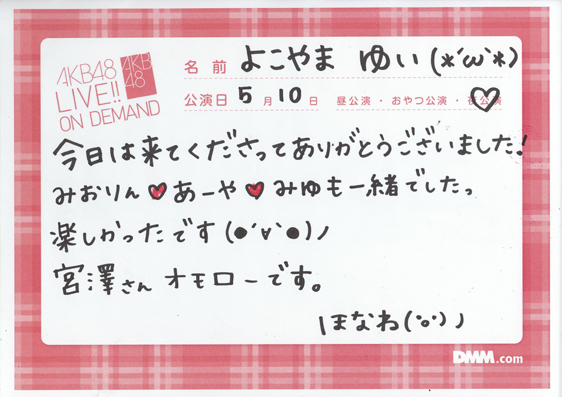 AKB48
LIVE!!
ON DEMAND
AKB
48
名前 よこやま ゆい(*´ω`*)
公演日 5月10日 昼公演・おやつ公演・夜公演
今日は来てくださってありがとうございました!
みおりん♥あーや♥みゆも一緒でしたっ
楽しかったです(●´∀`●)ノ
宮澤さんオモローです。
ほなわ(˙o˙)ノ
DMM.com